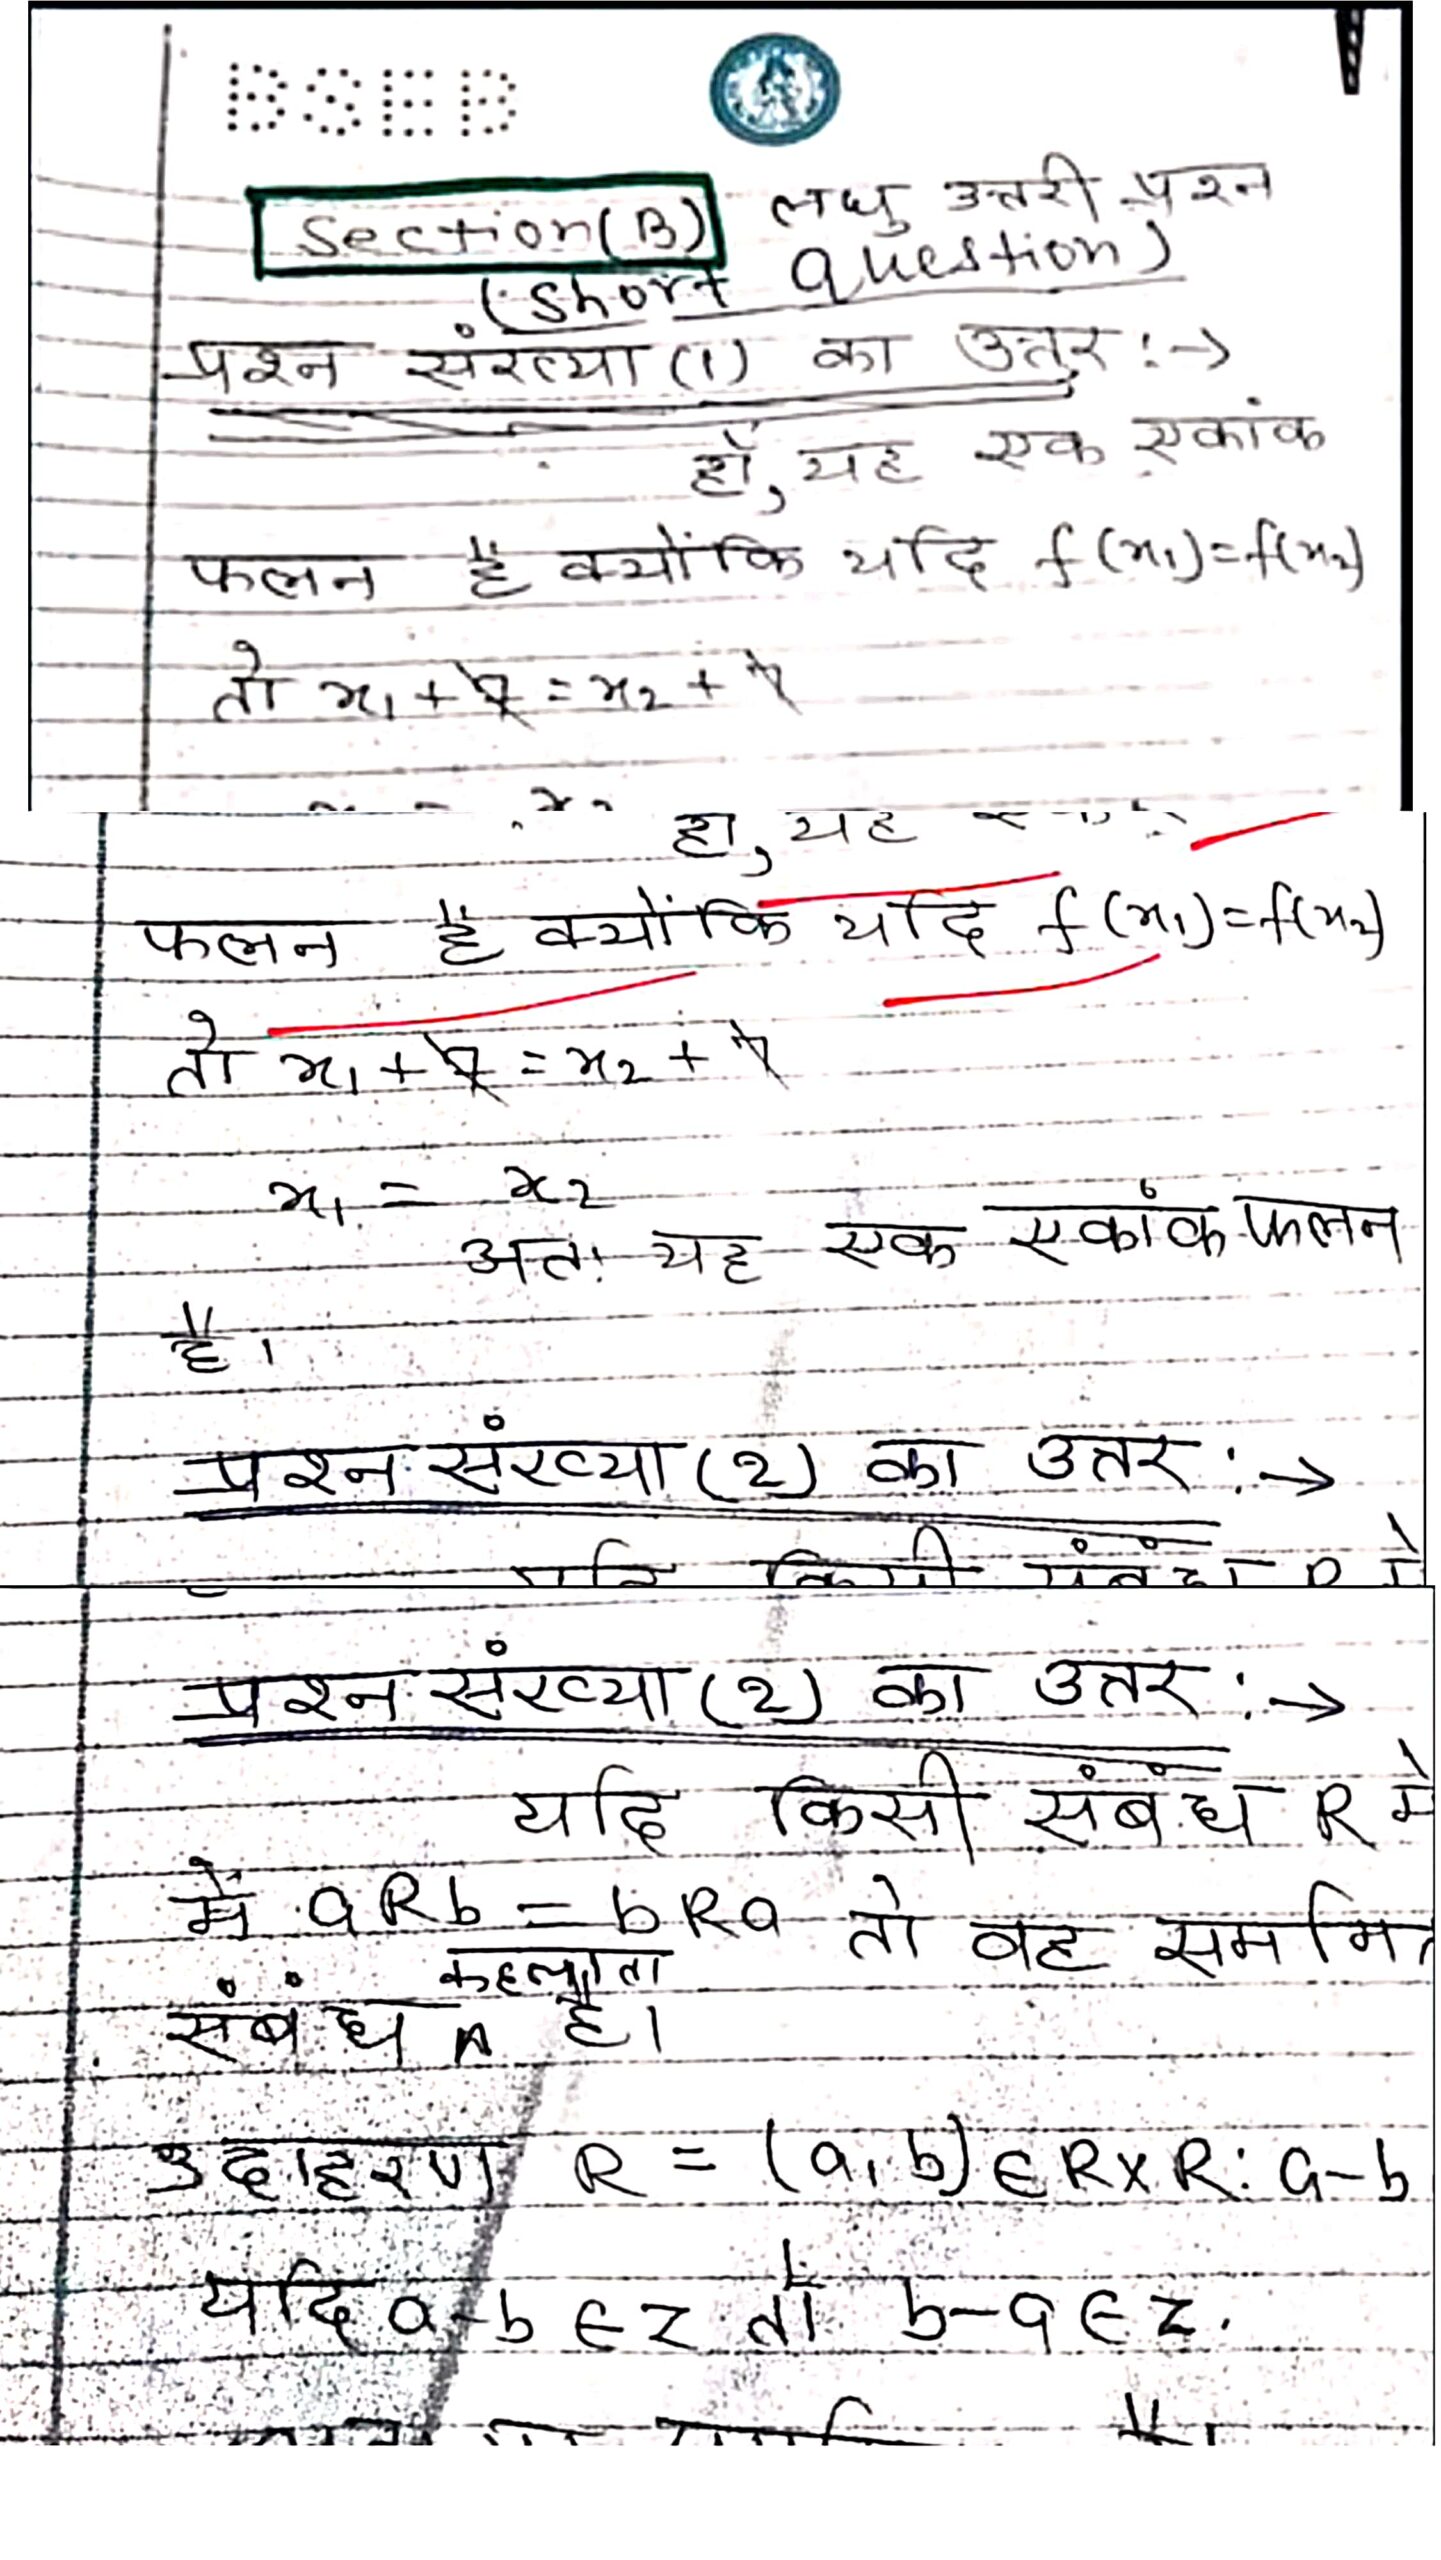 BSEB
Section(B) लघु उत्तरी प्रश्न
(Short Question)
प्रश्न संख्या (1) का उत्तर :→
हाँ, यह एक एकांक
फलन है क्योंकि यदि f(x1)=f(x2)
तो x1 + 7 = x2 + 7
हा, यह
फलन है क्योंकि यदि f(x1)=f(x2)
तो x1 + 7 = x2 + 7
x1 = x2
अतः यह एक एकांक फलन
है।
प्रश्न संख्या (2) का उत्तर :→
प्रश्न संख्या (2) का उत्तर :→
यदि किसी संबंध R मे
में aRb = bRa तो वह सममित
कहलाता
संबंध ^ है।
उदाहरण R = (a, b) ∈ R×R: a-b
यदि a-b ∈ z तो b-a ∈ z.